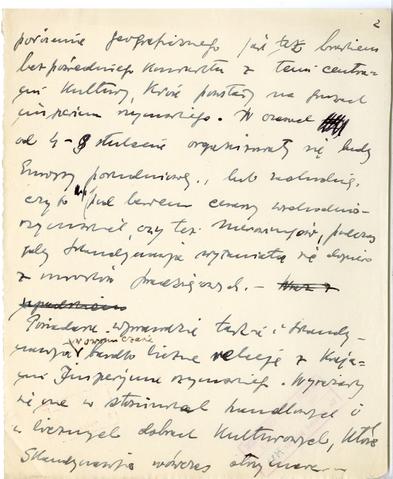 2
położenie geograficznego jak też brakiem
bezpośredniego kontaktu z temi centra-
mi kultury, które powstały na gruzach
imperium rzymskiego. W czasach
od 4-8 stulecia organizowały się ludy
Europy południowej, lub zachodniej,
czy to pod berłem cesarzy wschodnio-
rzymskich, czy też Merowingów, podczas
gdy Skandynawja wyłaniała się dopiero
z mroków pradziejowych. -
Posiadała wprawdzie także i Skandy-
nawja wówczas bardzo liczne relacje z kraja-
mi Imperjum rzymskiego. Wyrażały
się one w stosunkach handlowych i
w licznych dobrach kulturowych, które
Skandynawja wówczas otrzymała -